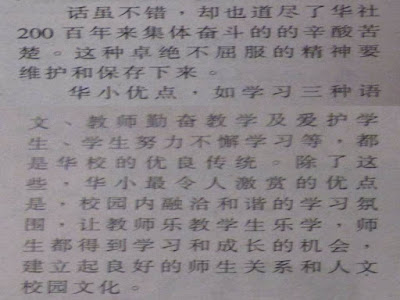 话虽不错，却也道尽了华社
200百年来集体奋斗的的辛酸苦
楚。这种卓绝不屈服的精神要
维护和保存下来。
华小优点，如学习三种语
文、教师勤奋教学及爱护学
生、学生努力不懈学习等，都
是华校的优良传统。除了这
些，华小最令人激赏的优点
是，校园内融洽和谐的学习氛
围，让教师乐教学生乐学，师
生都得到学习和成长的机会，
建立起良好的师生关系和人文
校园文化。